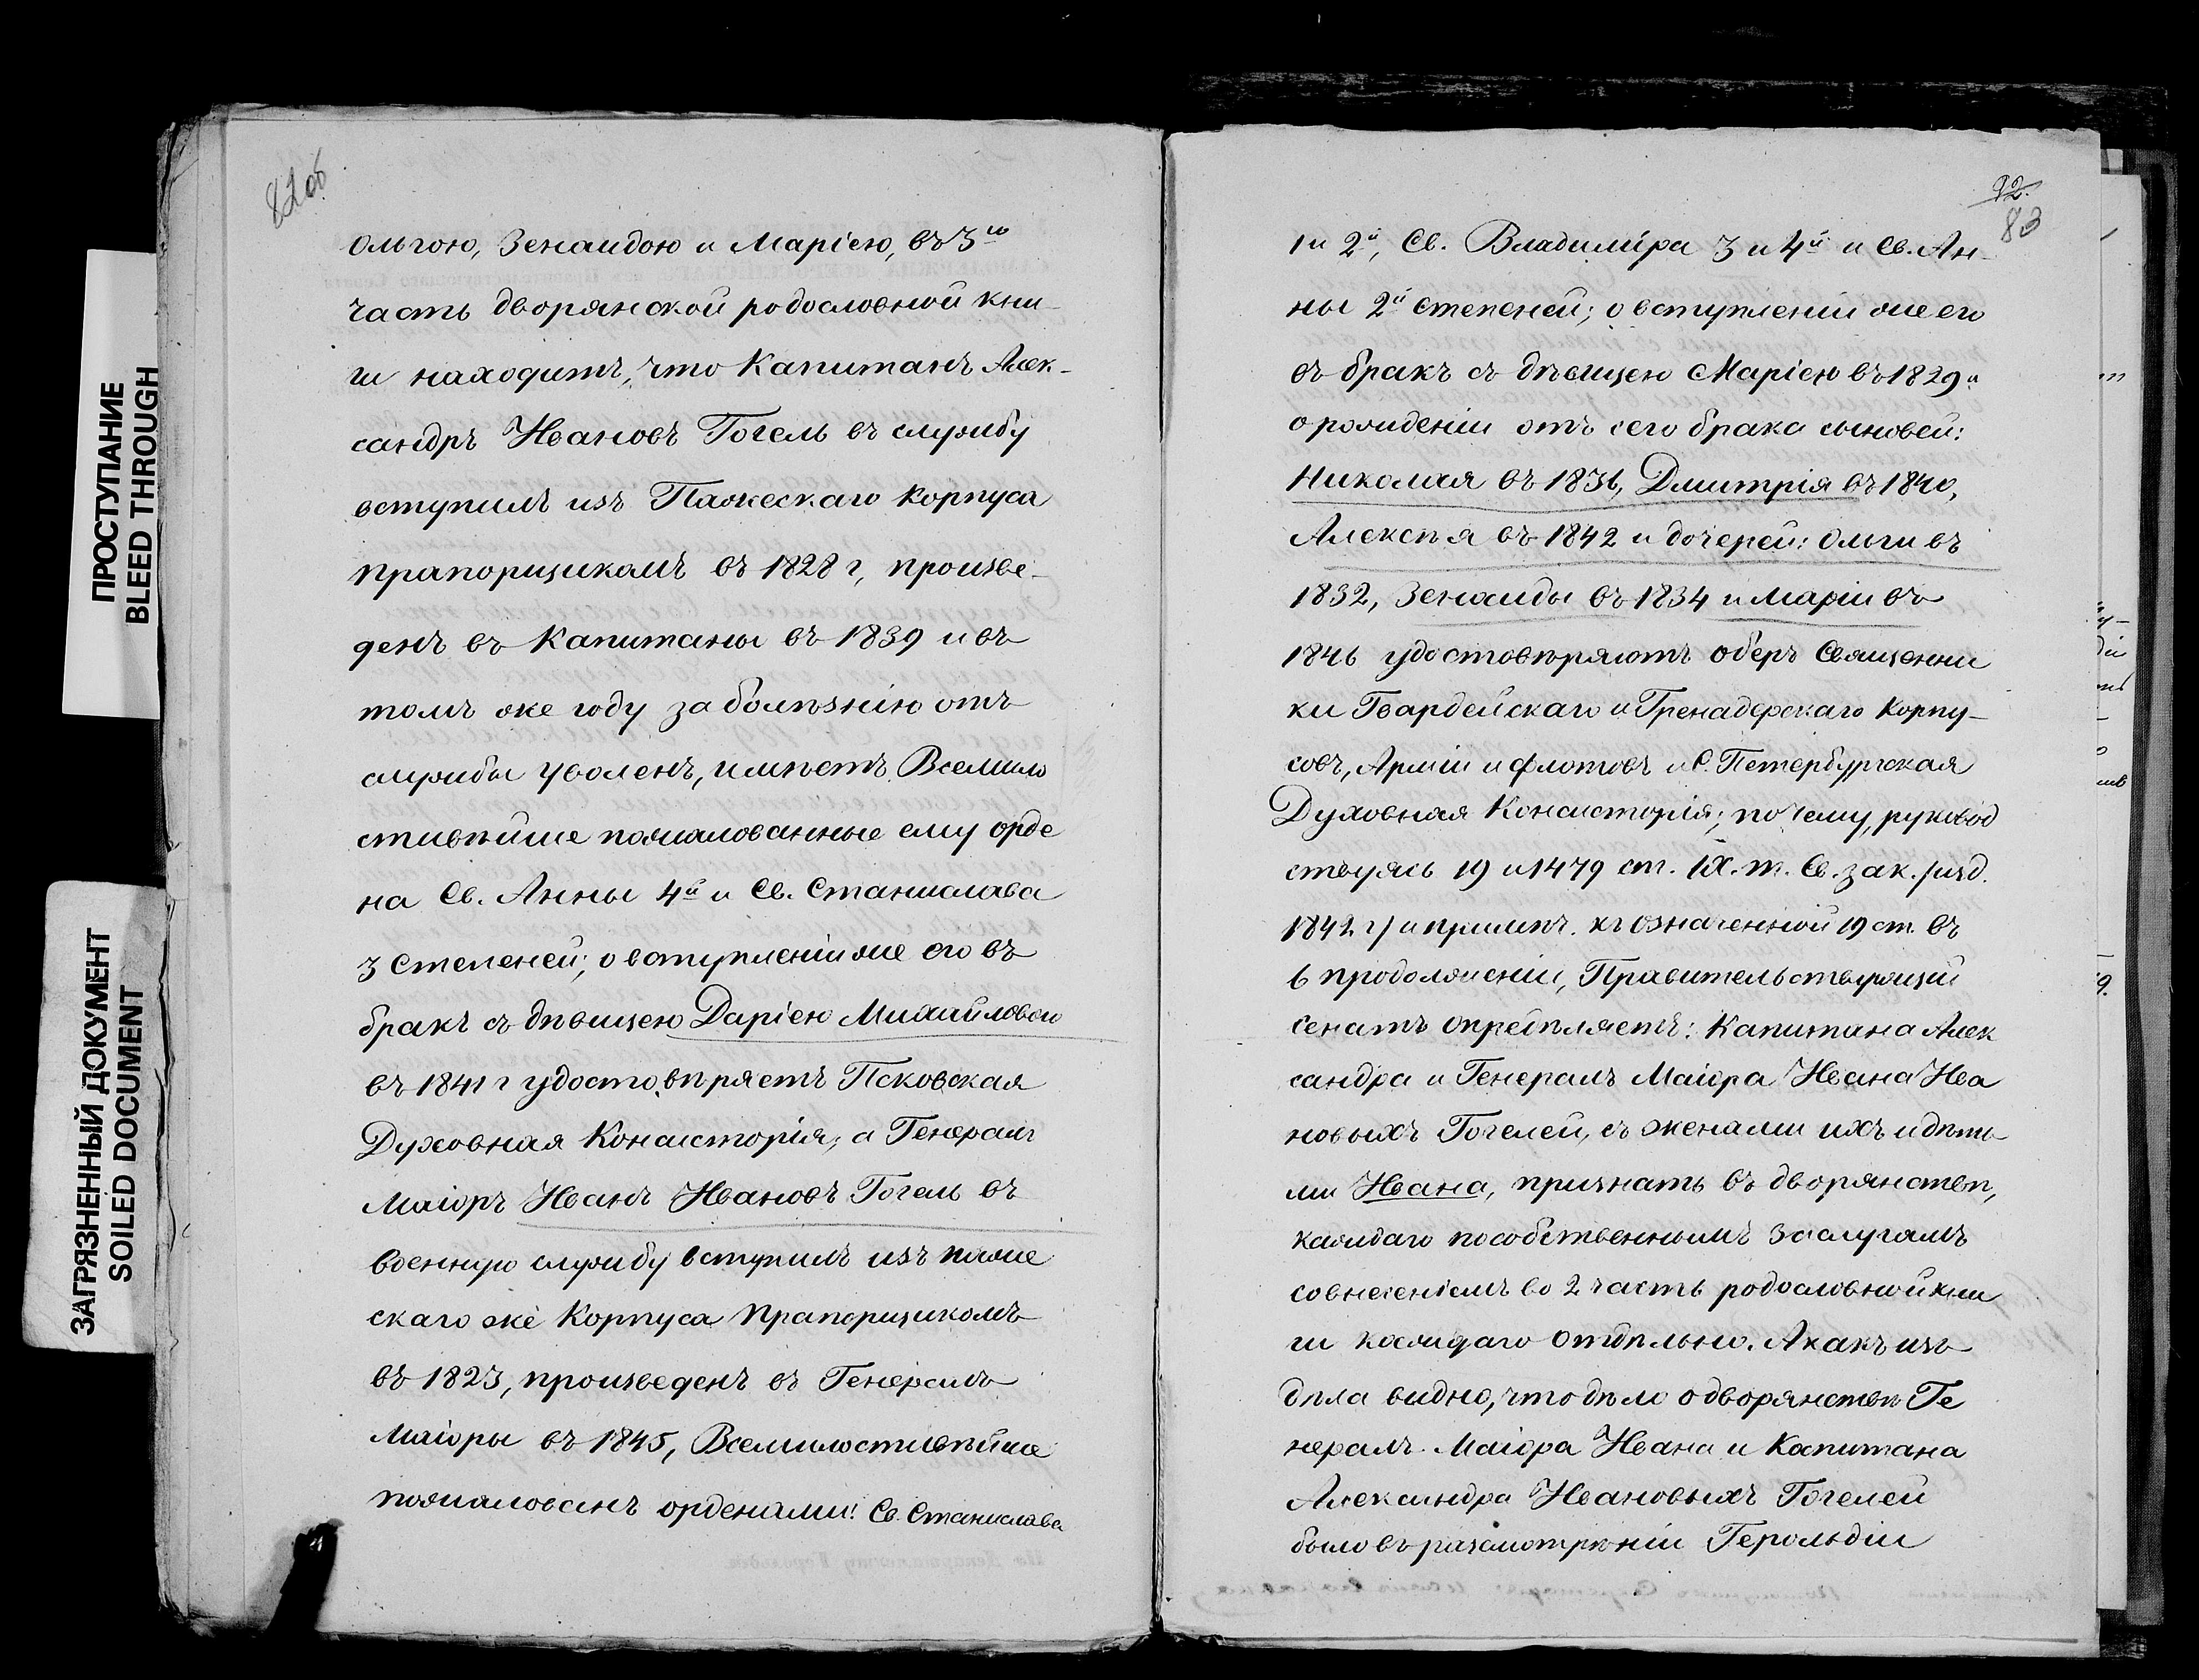 ПРОСТУПАНИЕ
BLEED THROUGH
ЗАГРЯЗНЕННЫЙ ДОКУМЕНТ
SOILED DOCUMENT
82об
Ольгою, Зенаидою и Маріею, въ 3ю
часть дворянской родословной кни-
ги находитъ, что Капитанъ Алек-
сандръ Ивановъ Гогель въ службу
вступилъ изъ Пажескаго Корпуса
прапорщикомъ въ 1828 г, произве-
денъ въ Капитаны въ 1839 и въ
томъ же году за болѣзнію отъ
службы уволенъ, имѣетъ Всемило
стивѣйше пожалованные ему орде
на Св. Анны 4й и Св. Станислава
3 степеней; о вступленіи же его въ
бракъ съ дѣвицею Даріею Михайловою
въ 1841 г удостовѣряетъ Псковская
Духовная Консисторія; а Генералъ
Маіоръ Иванъ Ивановъ Гогель въ
военную службу вступилъ изъ паже
скаго же Корпуса Прапорщикомъ
въ 1823, произведенъ въ Генералъ
Маіоры въ 1845, Всемилостивѣйше
пожалованъ орденами: Св. Станислава
92.
83
1 и 2й, Св. Владиміра 3 и 4й и Св. Ан-
ны 2й степеней; о вступленіи же его
въ бракъ съ дѣвицею Маріею въ 1829 и
о рожденіи отъ сего брака сыновей:
Николая въ 1836, Дмитрія въ 1840,
Алексѣя въ 1842 и дочерей: Ольги въ
1832, Зенаиды въ 1834 и Маріи въ
1846 удостовѣряютъ Оберъ Священни
ки Гвардейскаго и Гренадерскаго Корпу-
совъ, Арміи и флотовъ и С. Петербургская
Духовная Консисторія; почему, руковод
ствуясь 19 и 1479 ст. IX. т. Св. зак. /изд.
1842 г/ и примѣч. къ означенной 19 ст. въ
6 продолженіи, Правительствующій
Сенатъ опредѣляетъ: Капитана Алек
сандра и Генералъ Маіора Ивана Ива
новыхъ Гогелей, съ женами ихъ и дѣть
ми Ивана, признать въ дворянствѣ,
каждаго по собственнымъ заслугамъ
со внесеніемъ во 2 часть родословной кни
ги каждаго отдѣльно. А какъ изъ
дѣла видно, что дѣло о дворянствѣ Ге
нералъ Маіора Ивана и Капитана
Александра Ивановыхъ Гогелей
было въ разсмотрѣніи Герольдіи